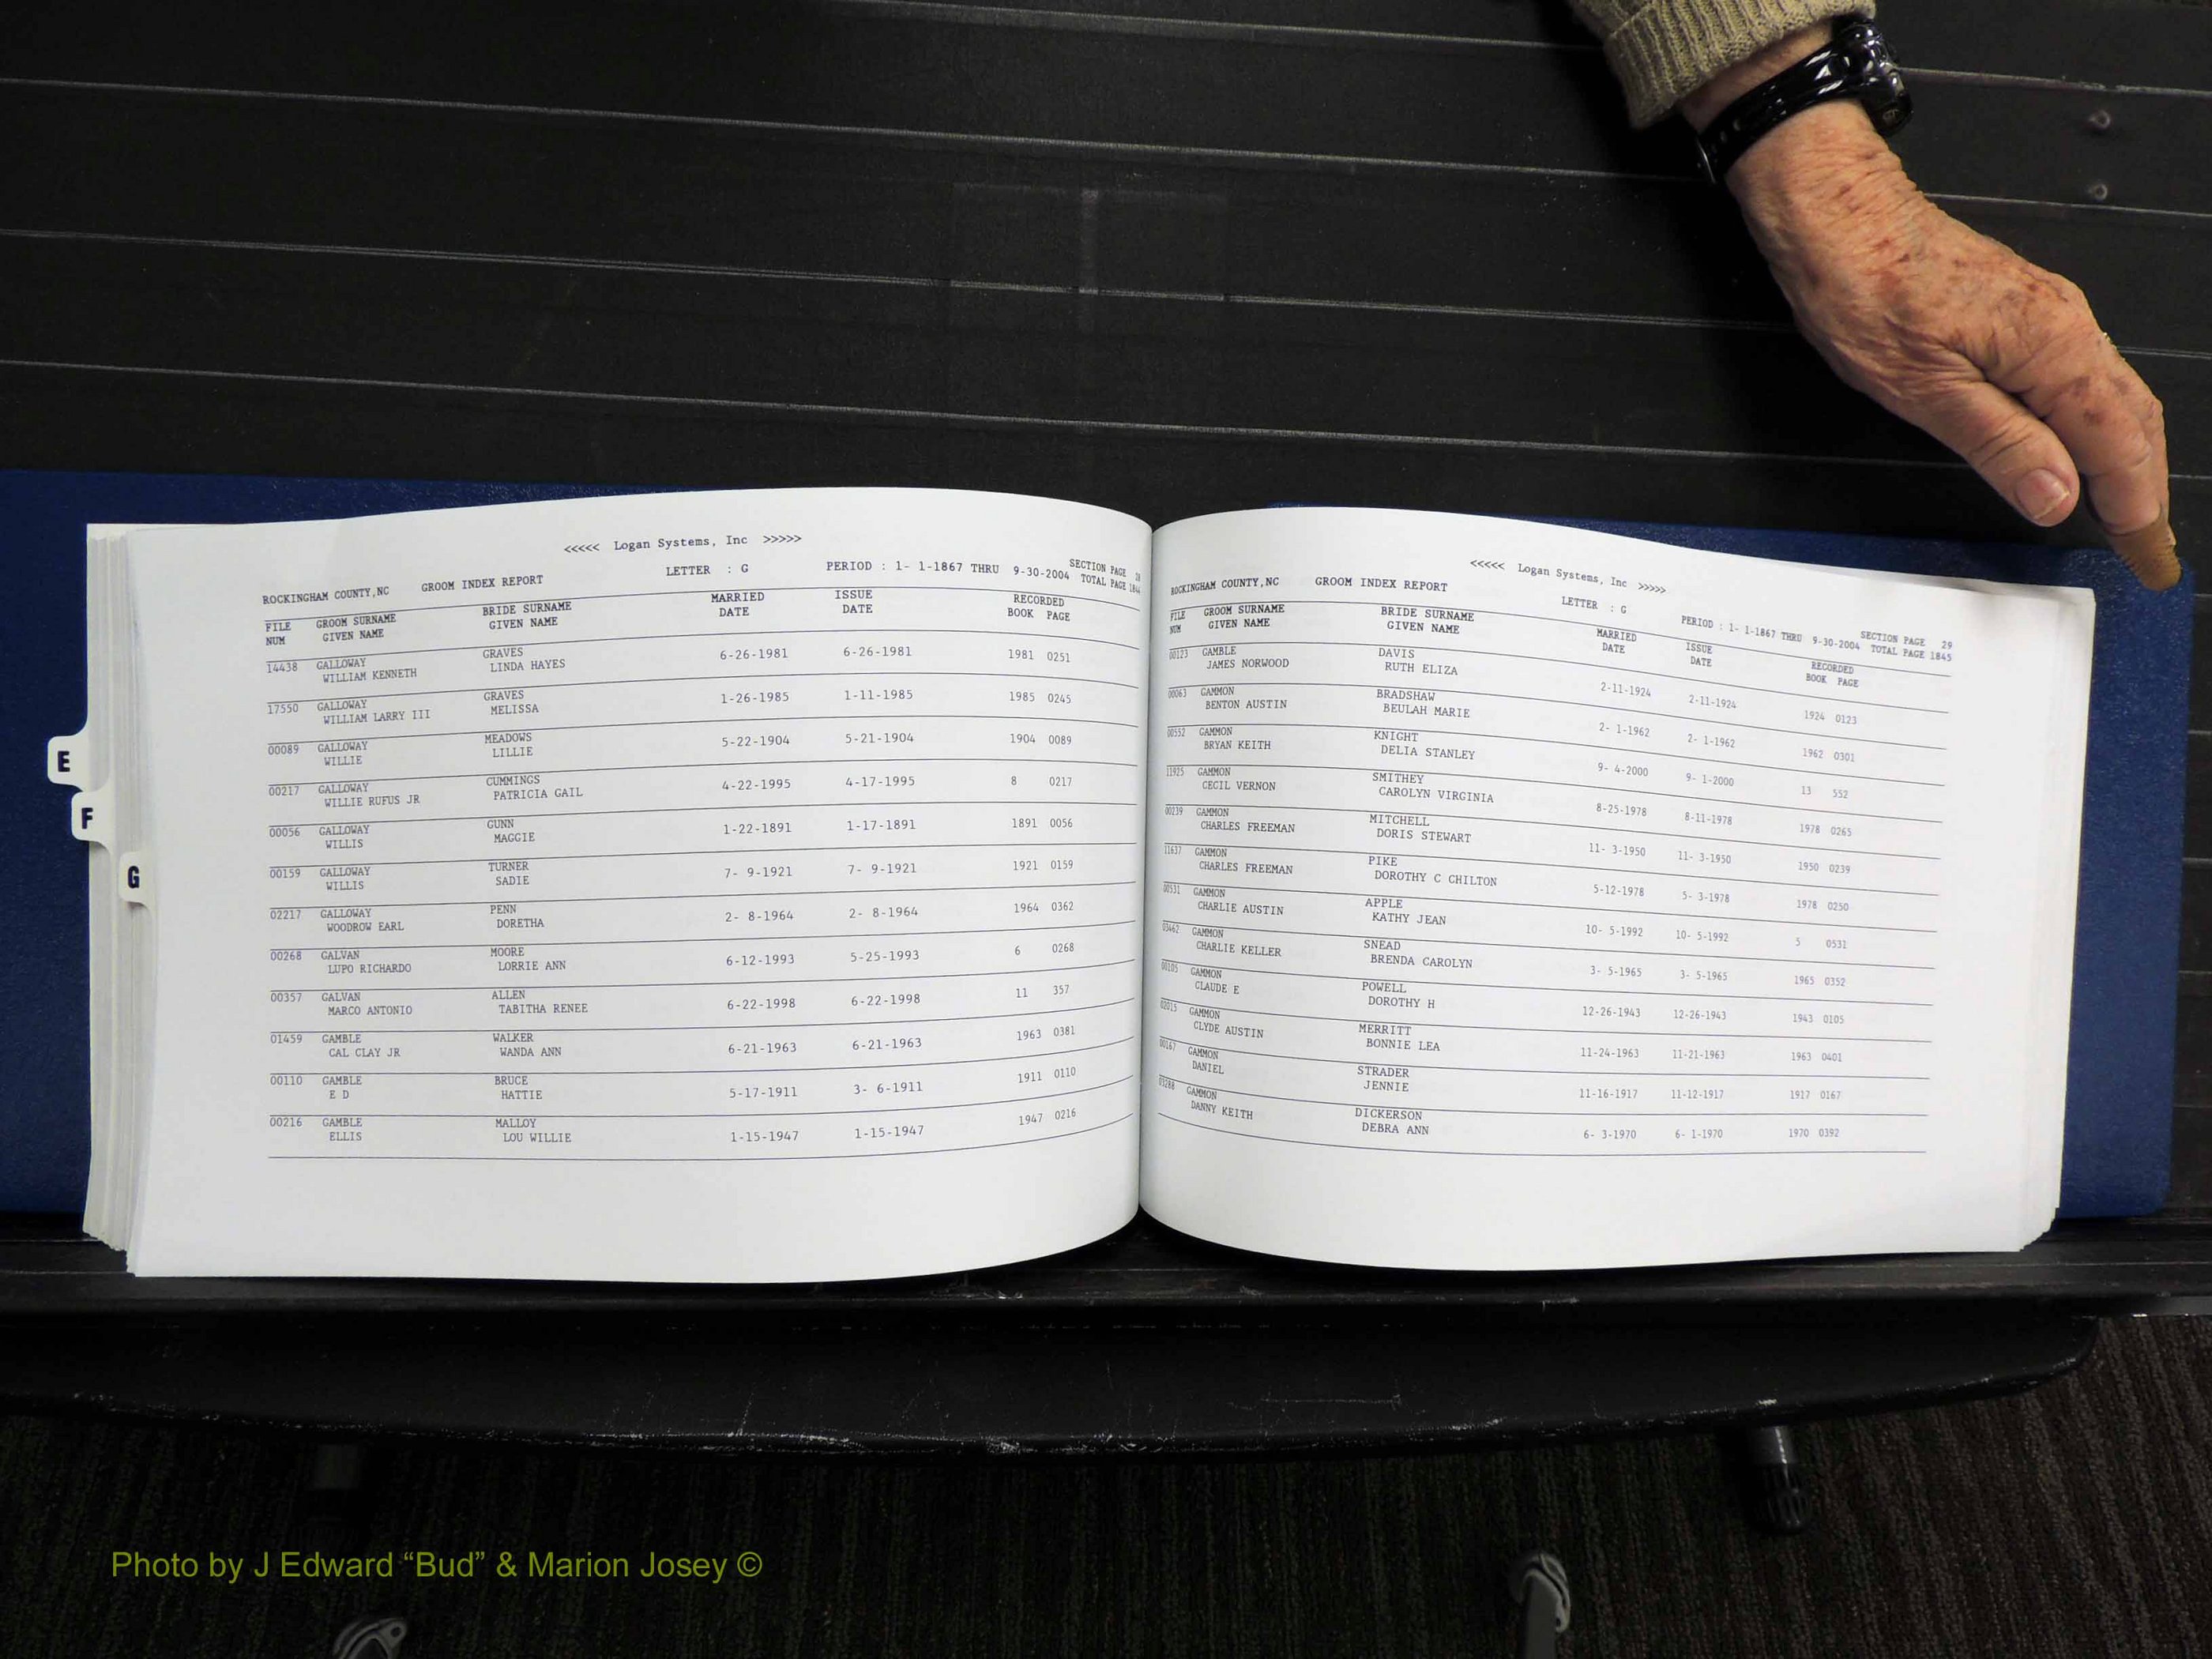 <<<<< Logan Systems, Inc >>>>>
ROCKINGHAM COUNTY,NC GROOM INDEX REPORT LETTER : G PERIOD : 1- 1-1867 THRU 9-30-2004 SECTION PAGE 28
TOTAL PAGE 1844
FILE GROOM SURNAME BRIDE SURNAME MARRIED ISSUE RECORDED
NUM GIVEN NAME GIVEN NAME DATE DATE BOOK PAGE
14438 GALLOWAY GRAVES 6-26-1981 6-26-1981 1981 0251
WILLIAM KENNETH LINDA HAYES
17550 GALLOWAY GRAVES 1-26-1985 1-11-1985 1985 0245
WILLIAM LARRY III MELISSA
00089 GALLOWAY MEADOWS 5-22-1904 5-21-1904 1904 0089
WILLIE LILLIE
00217 GALLOWAY CUMMINGS 4-22-1995 4-17-1995 8 0217
WILLIE RUFUS JR PATRICIA GAIL
00056 GALLOWAY GUNN 1-22-1891 1-17-1891 1891 0056
WILLIS MAGGIE
00159 GALLOWAY TURNER 7- 9-1921 7- 9-1921 1921 0159
WILLIS SADIE
02217 GALLOWAY PENN 2- 8-1964 2- 8-1964 1964 0362
WOODROW EARL DORETHA
00268 GALVAN MOORE 6-12-1993 5-25-1993 6 0268
LUPO RICHARDO LORRIE ANN
00357 GALVAN ALLEN 6-22-1998 6-22-1998 11 357
MARCO ANTONIO TABITHA RENEE
01459 GAMBLE WALKER 6-21-1963 6-21-1963 1963 0381
CAL CLAY JR WANDA ANN
00110 GAMBLE BRUCE 5-17-1911 3- 6-1911 1911 0110
E D HATTIE
00216 GAMBLE MALLOY 1-15-1947 1-15-1947 1947 0216
ELLIS LOU WILLIE
E
F
G
<<<<< Logan Systems, Inc >>>>>
ROCKINGHAM COUNTY,NC GROOM INDEX REPORT LETTER : G PERIOD : 1- 1-1867 THRU 9-30-2004 SECTION PAGE 29
TOTAL PAGE 1845
FILE GROOM SURNAME BRIDE SURNAME MARRIED ISSUE RECORDED
NUM GIVEN NAME GIVEN NAME DATE DATE BOOK PAGE
00123 GAMBLE DAVIS 2-11-1924 2-11-1924 1924 0123
JAMES NORWOOD RUTH ELIZA
00063 GAMMON BRADSHAW 2- 1-1962 2- 1-1962 1962 0301
BENTON AUSTIN BEULAH MARIE
00552 GAMMON KNIGHT 9- 4-2000 9- 1-2000 13 552
BRYAN KEITH DELIA STANLEY
11925 GAMMON SMITHEY 8-25-1978 8-11-1978 1978 0265
CECIL VERNON CAROLYN VIRGINIA
00239 GAMMON MITCHELL 11- 3-1950 11- 3-1950 1950 0239
CHARLES FREEMAN DORIS STEWART
11637 GAMMON PIKE 5-12-1978 5- 3-1978 1978 0250
CHARLES FREEMAN DOROTHY C CHILTON
00531 GAMMON APPLE 10- 5-1992 10- 5-1992 5 0531
CHARLIE AUSTIN KATHY JEAN
03462 GAMMON SNEAD 3- 5-1965 3- 5-1965 1965 0352
CHARLIE KELLER BRENDA CAROLYN
00105 GAMMON POWELL 12-26-1943 12-26-1943 1943 0105
CLAUDE E DOROTHY H
02015 GAMMON MERRITT 11-24-1963 11-21-1963 1963 0401
CLYDE AUSTIN BONNIE LEA
00167 GAMMON STRADER 11-16-1917 11-12-1917 1917 0167
DANIEL JENNIE
03288 GAMMON DICKERSON 6- 3-1970 6- 1-1970 1970 0392
DANNY KEITH DEBRA ANN
Photo by J Edward “Bud” & Marion Josey ©